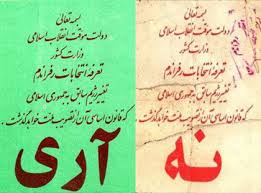 بسمه تعالی
دولت موقت انقلاب اسلامی
وزارت کشور
تعرفه انتخابات رفراندم
تغییر رژیم سابق به جمهوری اسلامی
که قانون اساسی آن از تصویب ملت خواهد گذشت.
آری
بسمه تعالی
دولت موقت انقلاب اسلامی
وزارت کشور
تعرفه انتخابات رفراندم
تغییر رژیم سابق به جمهوری اسلامی
که قانون اساسی آن از تصویب ملت خواهد گذشت.
نه